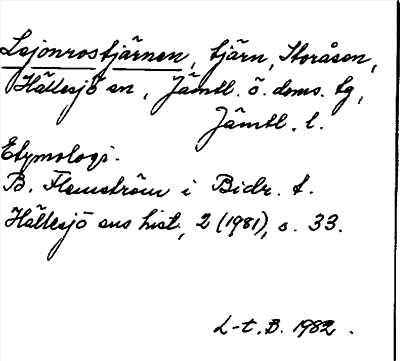 Lejonrostjärnen, tjärn, Storåsen,
Hällesjö sn, Jämtl. ö. doms. tg,
Jämtl. l.
Etymologi.
B. Flemström i Bidr. t.
Hällesjö sns hist, 2 (1981), s. 33.
L-t. B. 1982.